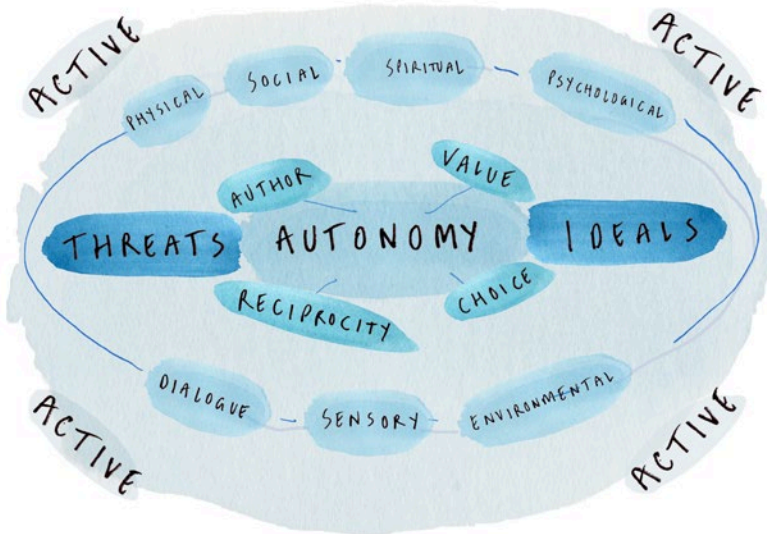 ACTIVE
ACTIVE
PHYSICAL
SOCIAL
SPIRITUAL
PSYCHOLOGICAL
AUTHOR
VALUE
THREATS
AUTONOMY
IDEALS
RECIPROCITY
CHOICE
DIALOGUE
SENSORY
ENVIRONMENTAL
ACTIVE
ACTIVE